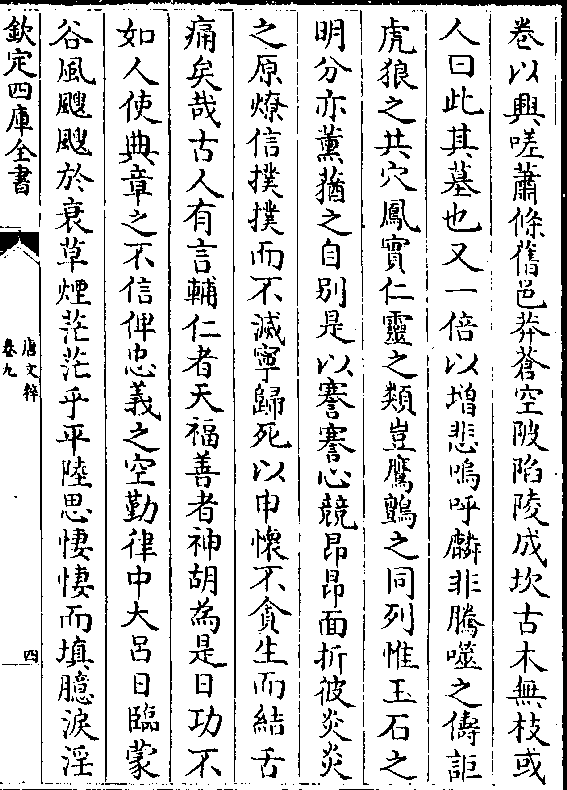 卷以興嗟蕭條舊邑莽蒼空陂陷陵成坎古木無枝或
人曰此其墓也又一倍以增悲嗚呼麟非騰噬之儔詎
虎狼之共穴鳳實仁靈之類豈鷹鸇之同列惟玉石之
明分亦薰蕕之自別是以謇謇心競昂昂面折彼炎炎
之原燎信撲撲而不滅寧歸死以申懷不貪生而結舌
痛矣哉古人有言輔仁者天福善者神胡為是日功不
如人使典章之不信俾忠義之空勤律中大呂日臨蒙
谷風颼颼於衰草煙茫茫乎平陸思悽悽而填臆淚淫
欽定四庫全書
唐文粹
卷九
四